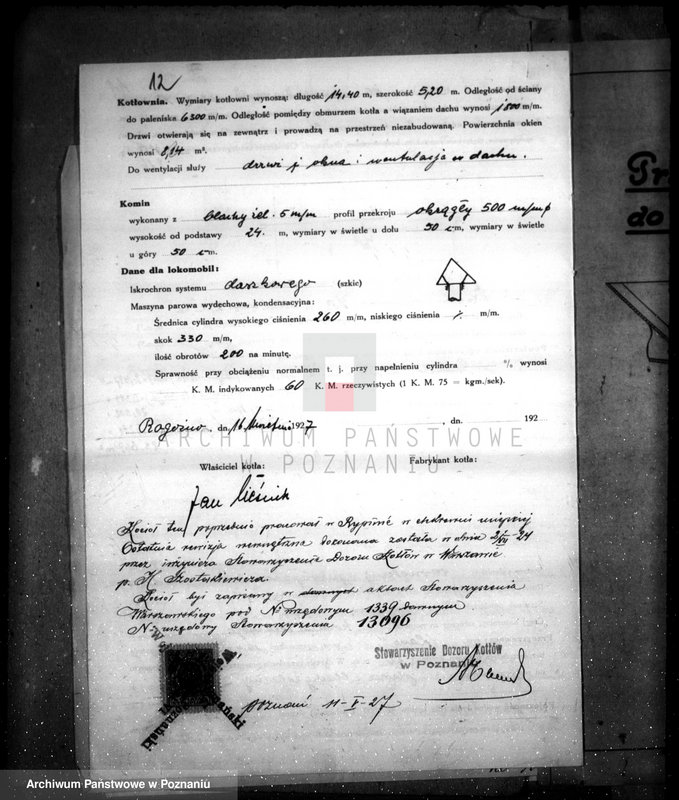 12
Kotłownia. Wymiary kotłowni wynoszą: długość 14,40 m, szerokość 5,20 m. Odległość od ściany
do paleniska 6300 m/m. Odległość pomiędzy obmurzem kotła a wiązaniem dachu wynosi 1800 m/m.
Drzwi otwierają się na zewnątrz i prowadzą na przestrzeń niezabudowaną. Powierzchnia okien
wynosi 8,14 m².
Do wentylacji służy drzwi, okna i wentylacja w dachu.
Komin
wykonany z blachy żel. 5 m/m profil przekroju okrągły 500 m/m
wysokość od podstawy 24. m, wymiary w świetle u dołu 50 c-m, wymiary w świetle
u góry 50 c-m.
Dane dla lokomobil:
Iskrochron systemu daszkowego (szkic)
Maszyna parowa wydechowa, kondensacyjna:
Średnica cylindra wysokiego ciśnienia 260 m/m, niskiego ciśnienia m/m.
skok 330 m/m,
ilość obrotów 200 na minutę.
Sprawność przy obciążeniu normalnem t. j. przy napełnieniu cylindra % wynosi
K. M. indykowanych 60 K. M. rzeczywistych (1 K. M. 75 = kgm./sek).
Rogoźno, dn. 16 kwietnia 1927 , dn. 192
ARCHIWUM PAŃSTWOWE
W POZNANIU
Właściciel kotła: Fabrykant kotła:
Jan
Kocioł ten poprzednio pracował w Rypinie w elektrowni miejskiej
Ostatnia rewizja wewnętrzna dokonana została w dnia 24
przez inżyniera Stowarzyszenia Dozoru Kotłów w Warszawie
p.
Kocioł był zapisany w aktach Stowarzyszenia
Warszawskiego pod N urzędowym 1339 dawnym
N- urzędowy Stowarzyszenia 13696
Stowarzyszenie Dozoru Kotłów
w Poznaniu
Poznań 11-V-27
Archiwum Państwowe w Poznaniu